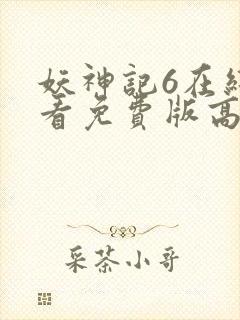 妖神記6在
看免費版高
采茶小哥